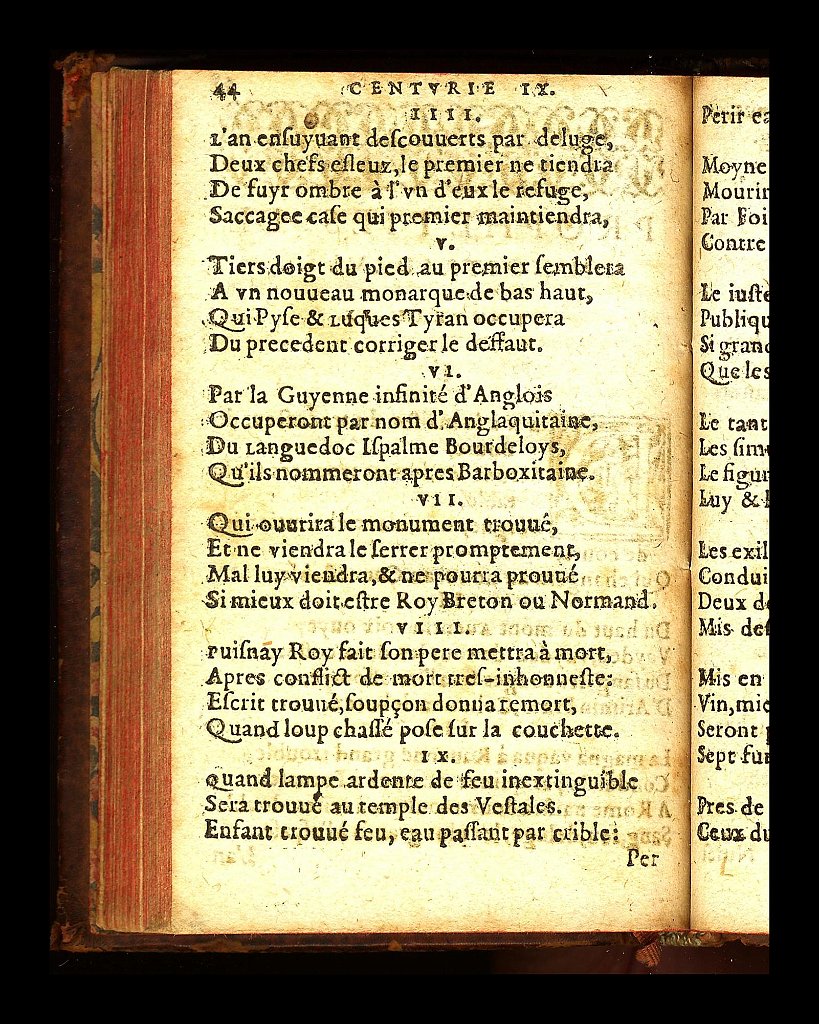 44 CENTVRIE IX.
IIII.
L'an ensuyuant descouuerts par deluge,
Deux chefs esleuz, le premier ne tiendra
De fuyr ombre à l'vn d'eux le refuge,
Saccagee case qui premier maintiendra,
V.
Tiers doigt du pied au premier semblera
A vn nouueau monarque de bas haut,
Qui Pyse & Luques Tyran occupera
Du precedent corriger le deffaut.
VI.
Par la Guyenne infinité d'Anglois
Occuperont par nom d'Anglaquitaine,
Du Languedoc Ispalme Bourdeloys,
Qu'ils nommeront apres Barboxitaine.
VII.
Qui ouurira le monument trouué,
Et ne viendra le serrer promptement,
Mal luy viendra, & ne pourra prouué
Si mieux doit estre Roy Breton ou Normand.
VIII.
Puisnay Roy fait son pere mettra à mort,
Apres conflict de mort tres-inhonneste:
Escrit trouué, soupçon donna remort,
Quand loup chassé pose sur la couchette.
IX.
Quand lampe ardente de feu inextinguible
Sera trouué au temple des Vestales.
Enfant trouué feu, eau passant par crible:
Per
Perir ea
Moyne
Mourir
Par Foi
Contre
Le iuste
Publiqu
Si grand
Que les
Le tant
Les sim
Le figur
Luy &
Les exil
Condui
Deux d
Mis des
Mis en
Vin, mie
Seront
Sept fu
Pres de
Ceux du